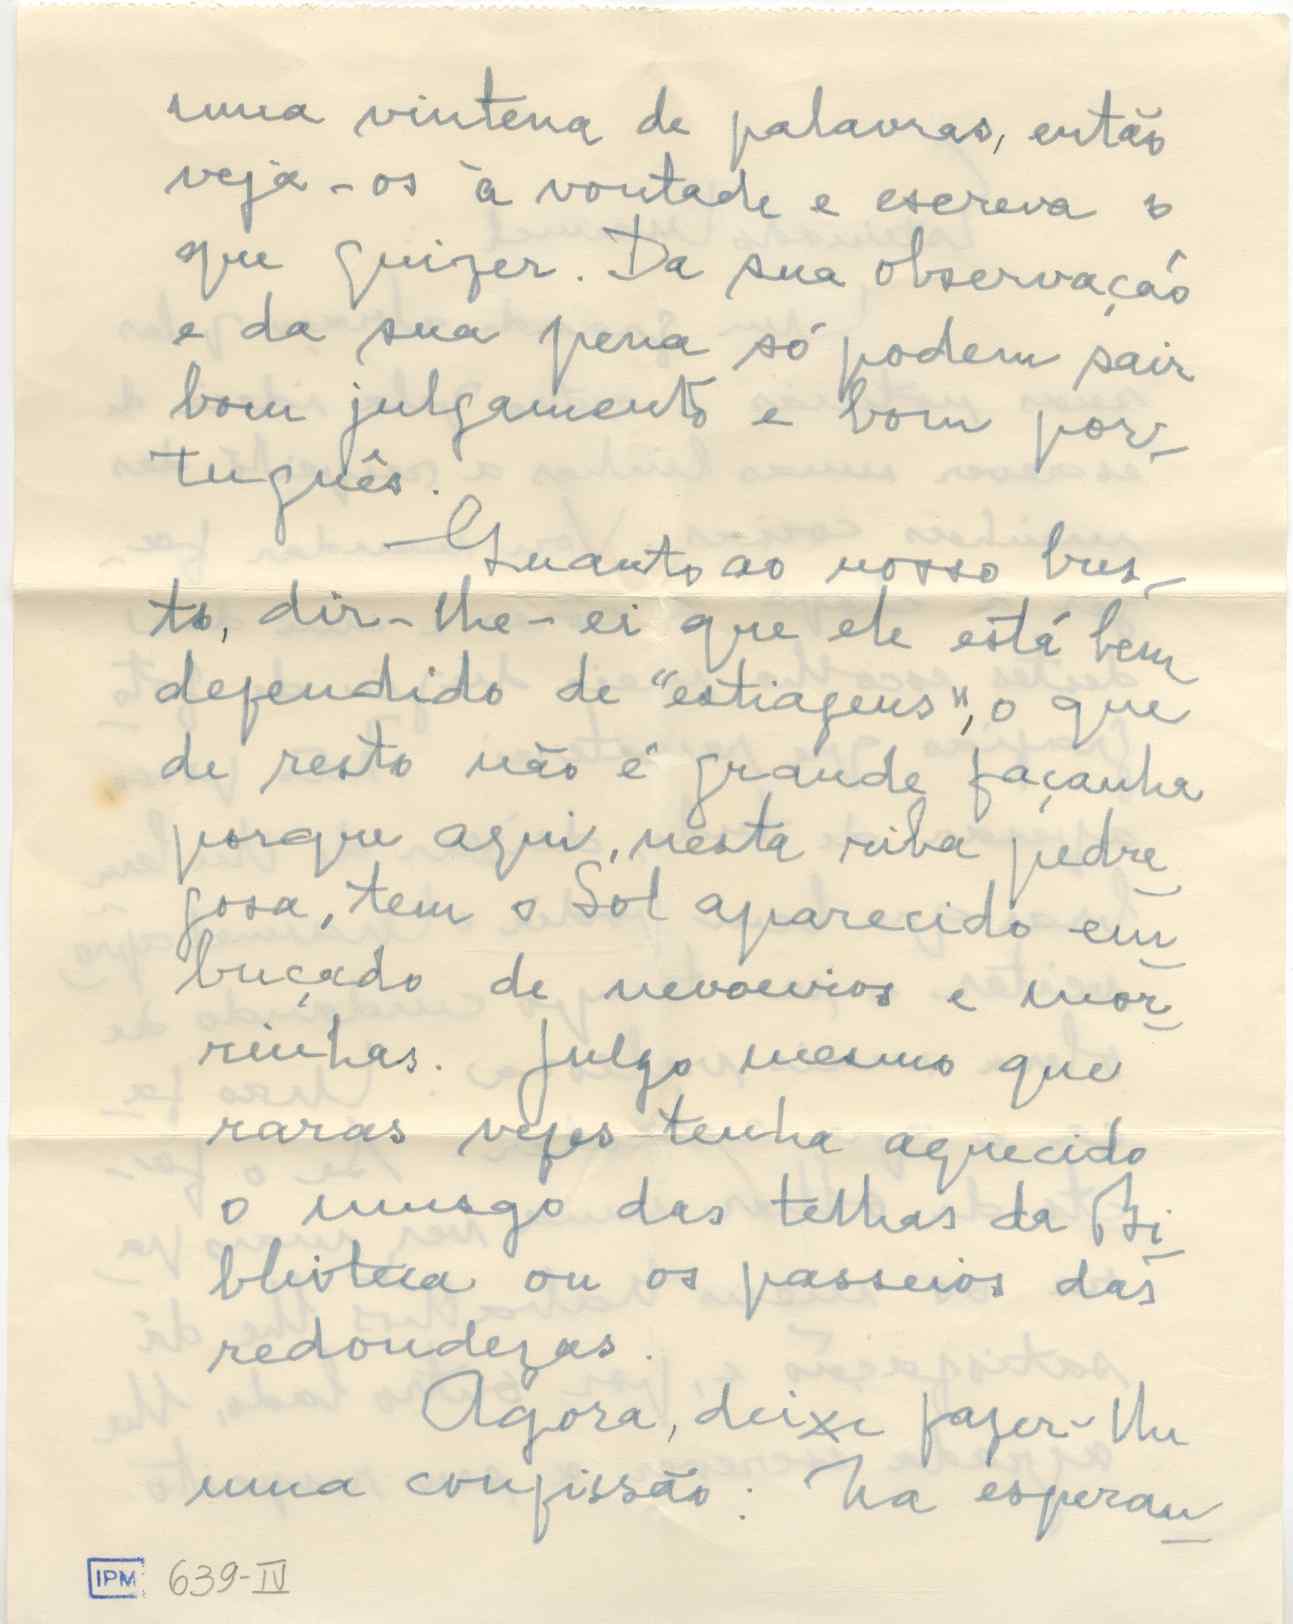 uma vintena de palavras, então
veja-os à vontade e escreva o
que quizer. Da sua observação
e da sua pena só podem sair
bom julgamento e bom por-
tuguês.
— Quanto ao nosso bus-
to, dir-lhe-ei que ele está bem
defendido de "estiagens", o que
de resto não é grande façanha
porque aqui, nesta riba pedre
gosa, tem o Sol aparecido em
buçado de nevoeiros e mor
rinhas. Julgo mesmo que
raras vezes tenha aquecido
o musgo das telhas da Bi
blioteca ou os passeios das
redondezas.
Agora, deixe fazer-lhe
uma confissão: Na esperan
IPM 639-IV